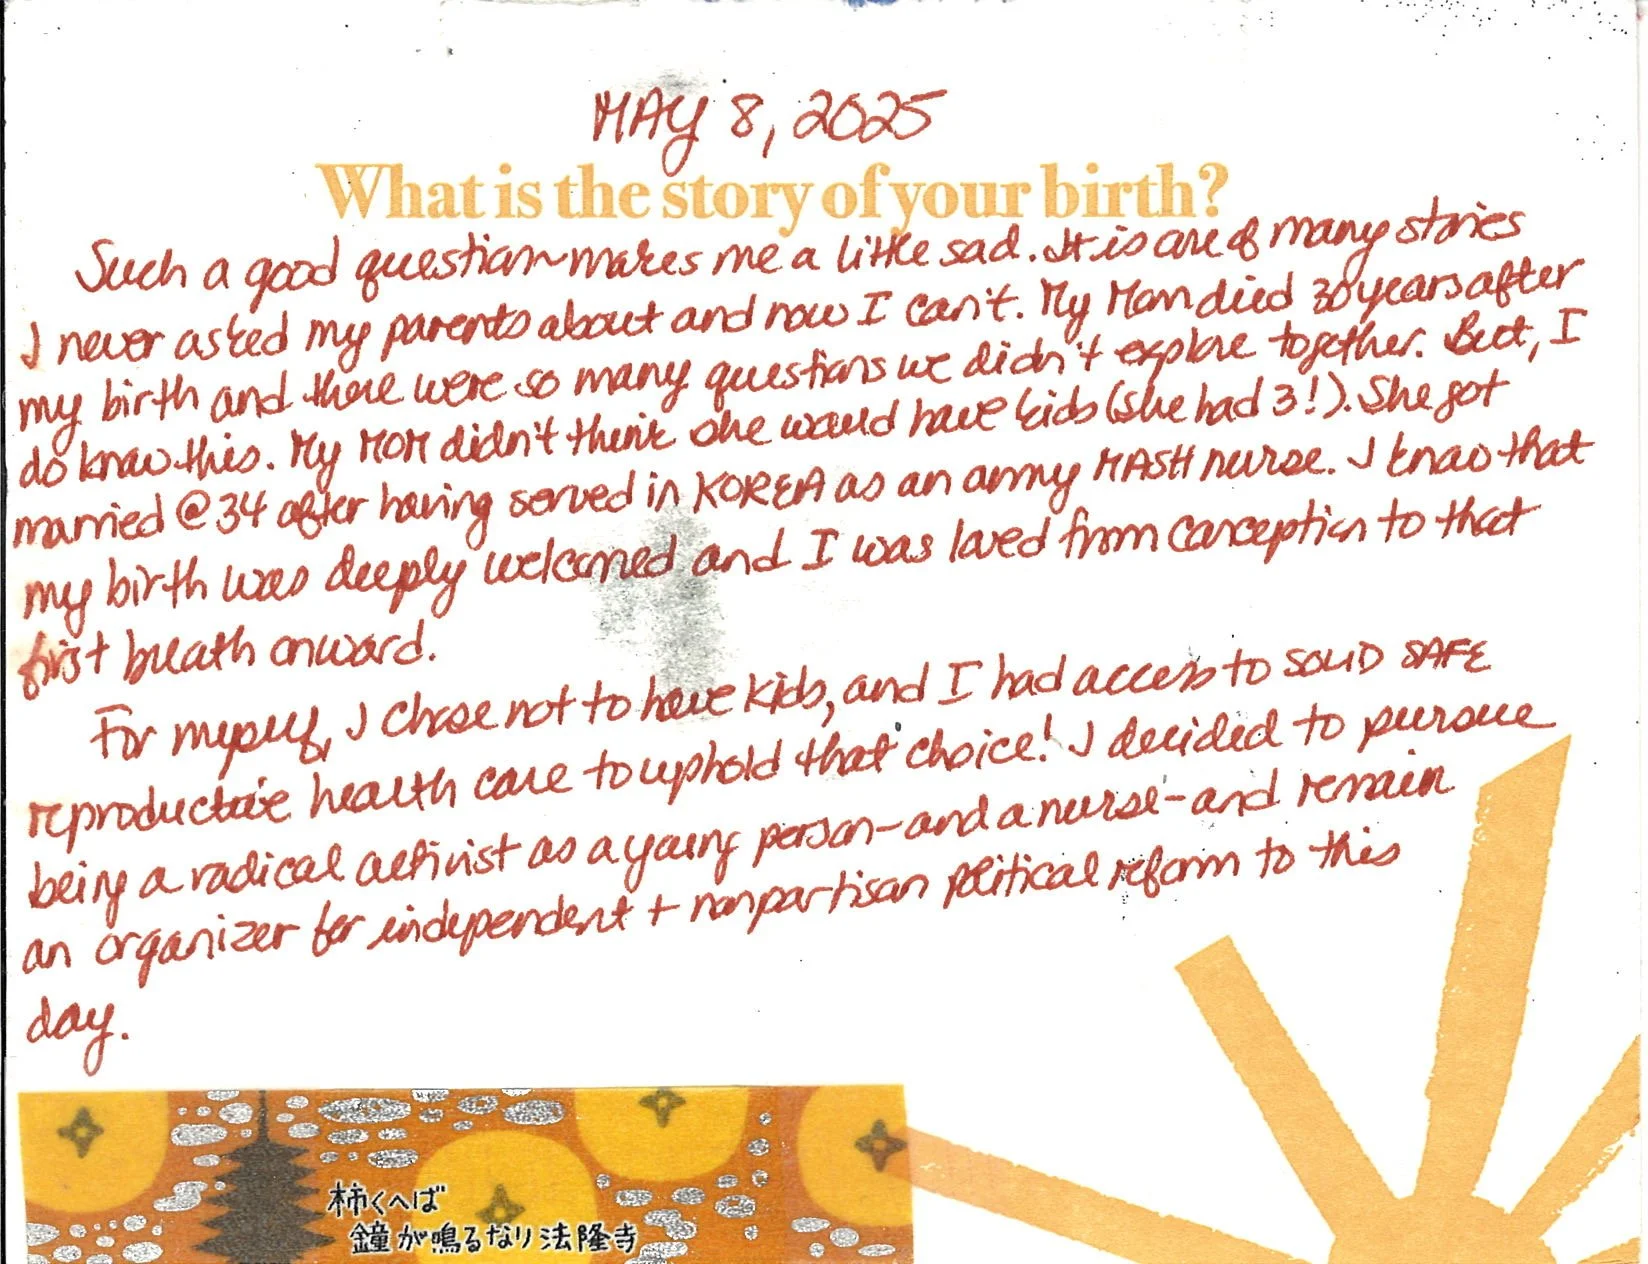 MAY 8, 2025
What is the story of your birth?
Such a good question~makes me a little sad. It is one of many stories
I never asked my parents about and now I can't. My Mom died 30 years after
my birth and there were so many questions we didn't explore together. But, I
do know this. My MOM didn't think she would have kids (she had 3!). She got
married @ 34 after having served in KOREA as an army MASH nurse. I know that
my birth was deeply welcomed and I was loved from conception to that
first breath onward.
For myself, I chose not to have kids, and I had access to SOLID SAFE
reproductive health care to uphold that choice! I decided to pursue
being a radical activist as a young person-and a nurse-and remain
an organizer for independent + nonpartisan political reform to this
day.
柿くへば
鐘が鳴るなり法隆寺